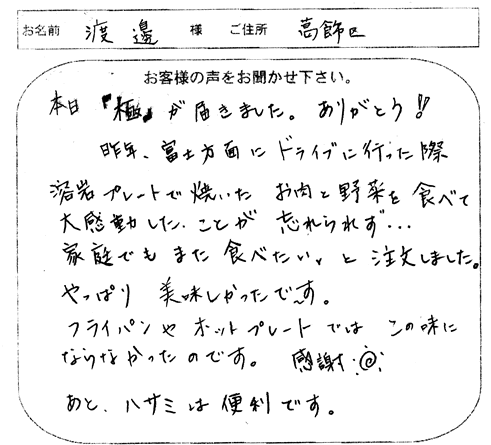 お名前 渡邊 様 ご住所 葛飾区
お客様の声をお聞かせ下さい。
本日『極』が届きました。ありがとう!!
昨年、富士方面にドライブに行った際
溶岩プレートで焼いた お肉と野菜を食べて
大感動したことが 忘れられず…
家庭でもまた食べたい、と注文しました。
やっぱり 美味しかったで〜す。
フライパンやホットプレートではこの味に
ならなかったのです。 感謝
あと、ハサミは便利です。